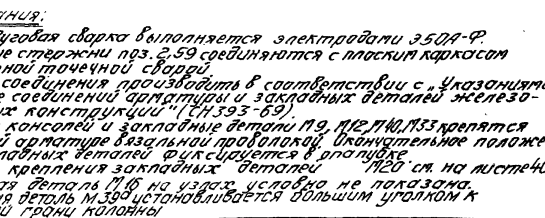 ания:
уговая сварка выполняется электродами Э50А-Ф.
ые стержни поз. 2,59 соединяются с плоским каркасом
ной точечной сварой
соединения производить в соответствии с „Указаниями
е соединений арматуры и закладных деталей железо-
ых конструкций" (СН393-69).
консолей и закладные детали М9, М12, М40, М33 крепятся
й арматуре вязальной проволокой. Окончательное положе
ладных деталей фиксируется в опалубке
крепления закладных деталей М20 см. на листе 40
ая деталь М16 на узлах условно не показана.
ая деталь М39 устанавливается большим уголком к
й грани колонны